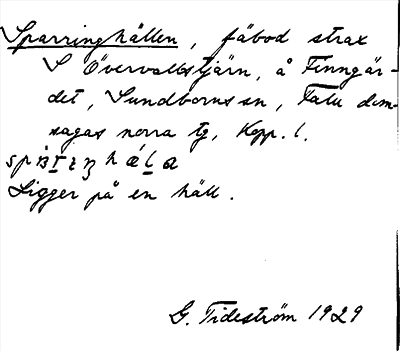 Sparringhällen, fäbod strax
S Övervallstjärn, å Finngär-
det, Sundborns sn, Falu dom-
sagas norra tg, Kopp. l.
Ligger på en häll.
G. Tideström 1929